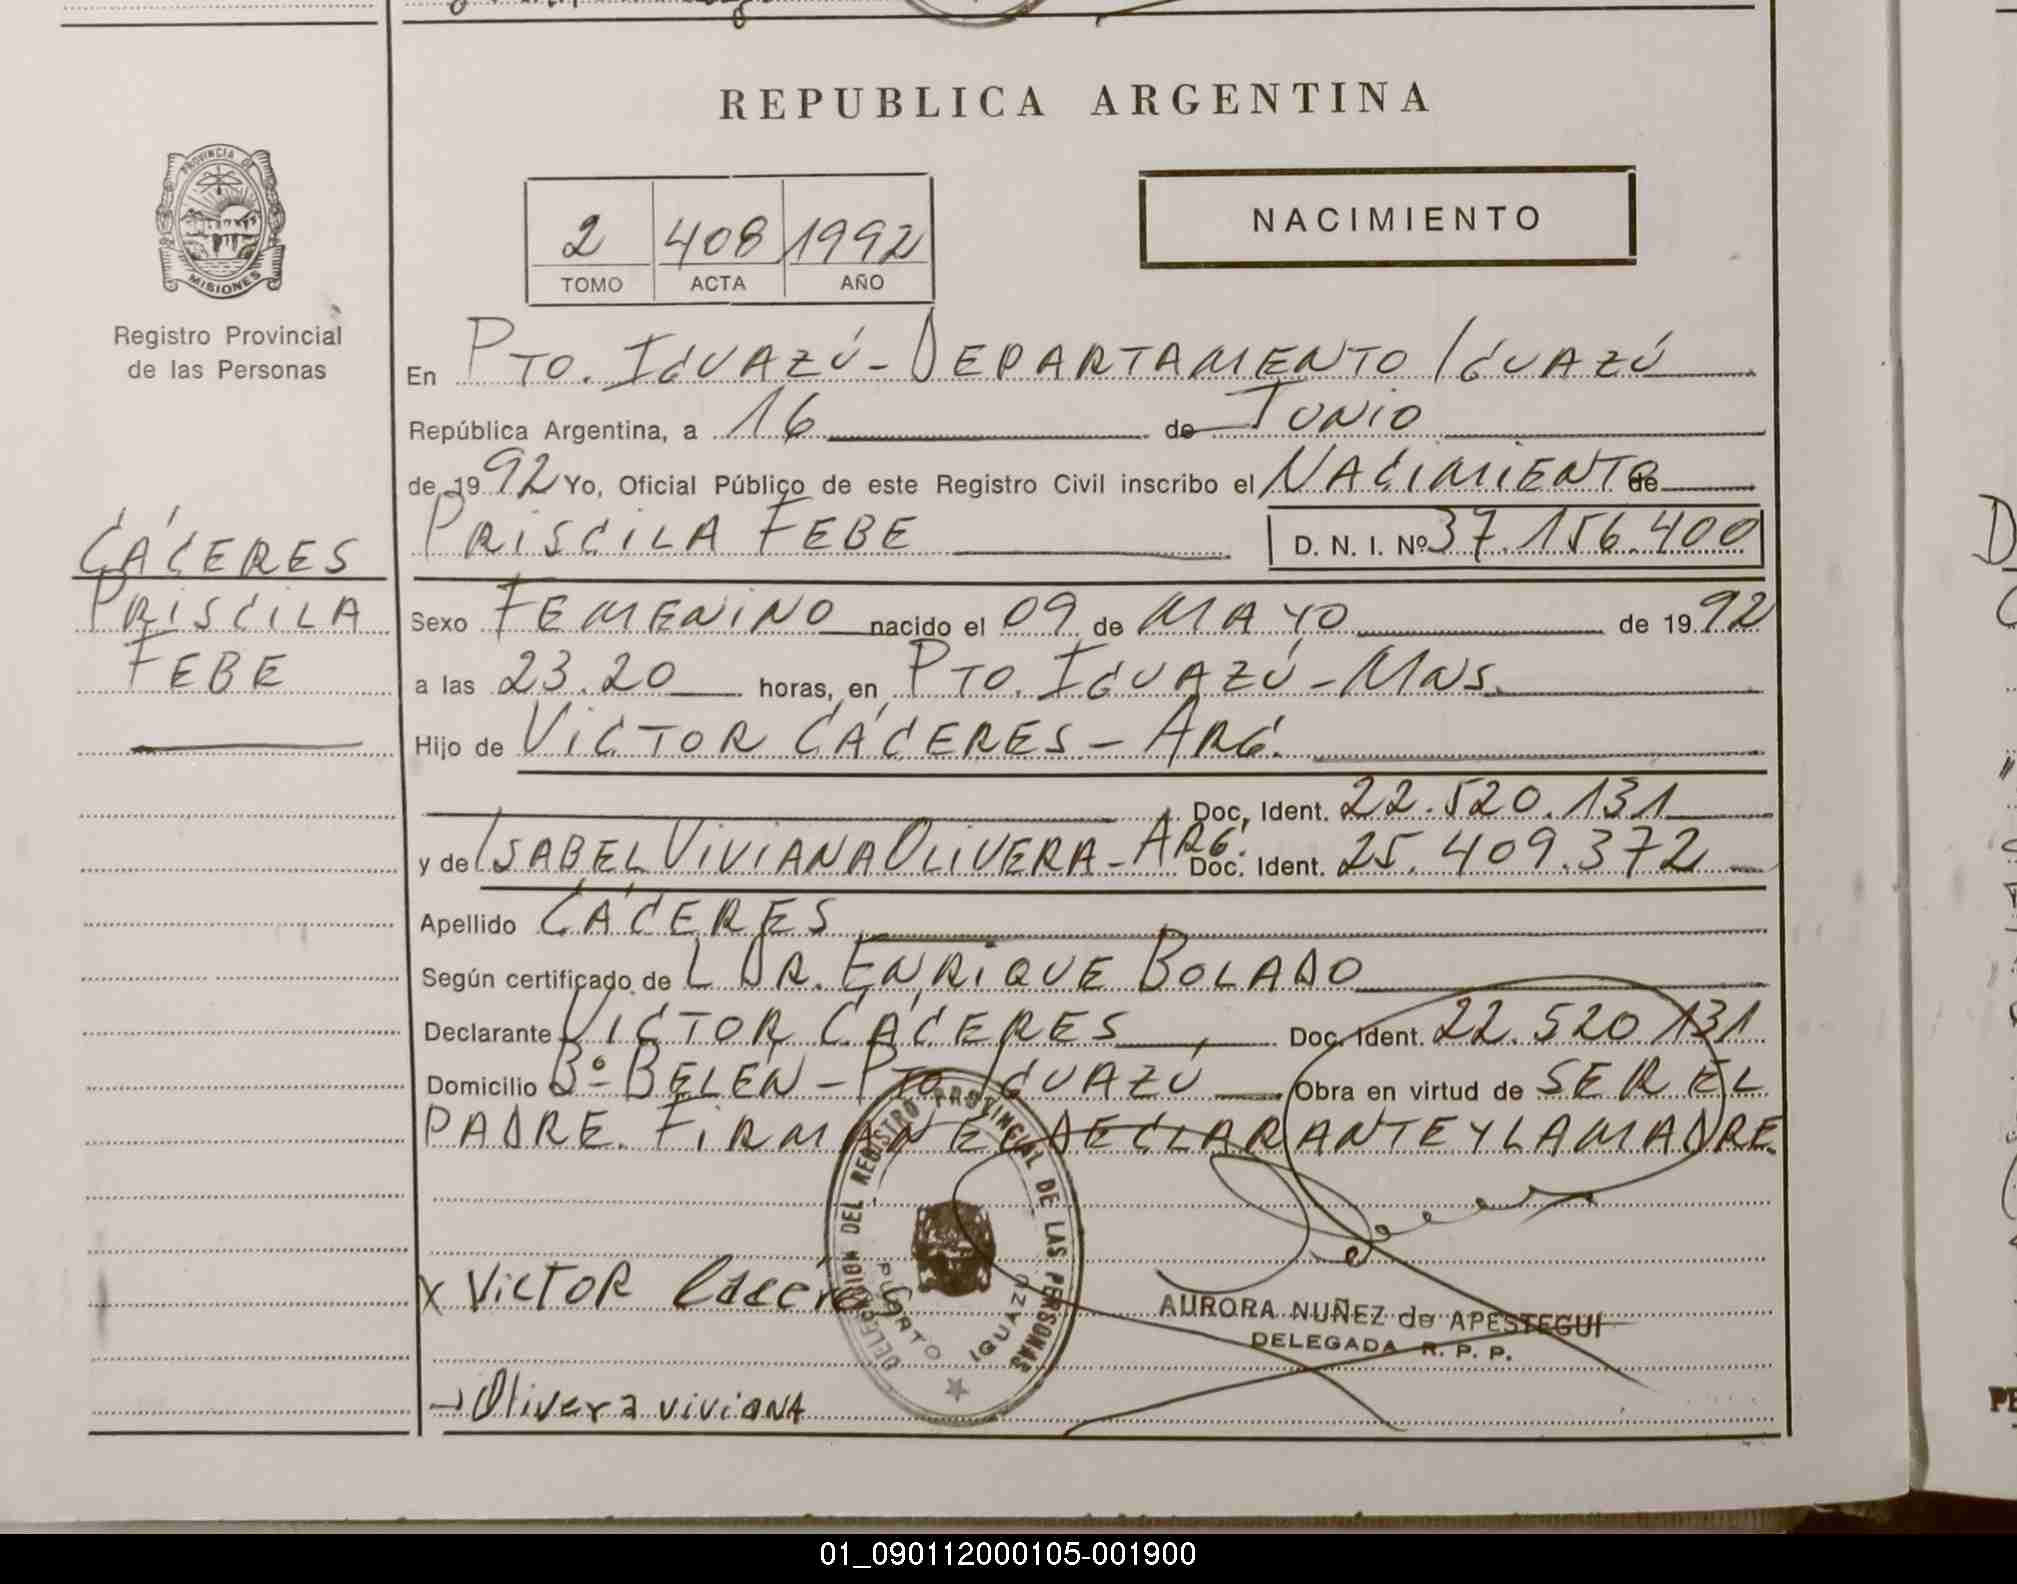 REPUBLICA ARGENTINA
PROVINCIA DE MISIONES
Registro Provincial
de las Personas
2 408 1992
TOMO ACTA AÑO
NACIMIENTO
En PTO. IGUAZÚ - DEPARTAMENTO IGUAZÚ
República Argentina, a 16 de JUNIO
de 1992 Yo, Oficial Público de este Registro Civil inscribo el NACIMIENTO de
PRISCILA FEBE D. N. I. Nº 37.156.400
CÁCERES
PRISCILA
FEBE
Sexo FEMENINO nacido el 09 de MAYO de 1992
a las 23.20 horas, en PTO. IGUAZÚ - MNS.
Hijo de VICTOR CÁCERES - ARG.
Doc. Ident. 22.520.131
y de ISABEL VIVIANA OLIVERA - ARG. Doc. Ident. 25.409.372
Apellido CÁCERES
Según certificado de L DR. ENRIQUE BOLADO
Declarante VICTOR CÁCERES Doc. Ident. 22.520.131
Domicilio Bº BELÉN - PTO. IGUAZÚ Obra en virtud de SER EL
PADRE. FIRMAN EL DECLARANTE Y LA MADRE.
DELEGACION DEL REGISTRO PROVINCIAL DE LAS PERSONAS
PUERTO IGUAZU
X VICTOR Caceres
AURORA NUÑEZ de APESTEGUI
DELEGADA R. P. P.
Olivera viviana
01_090112000105-001900